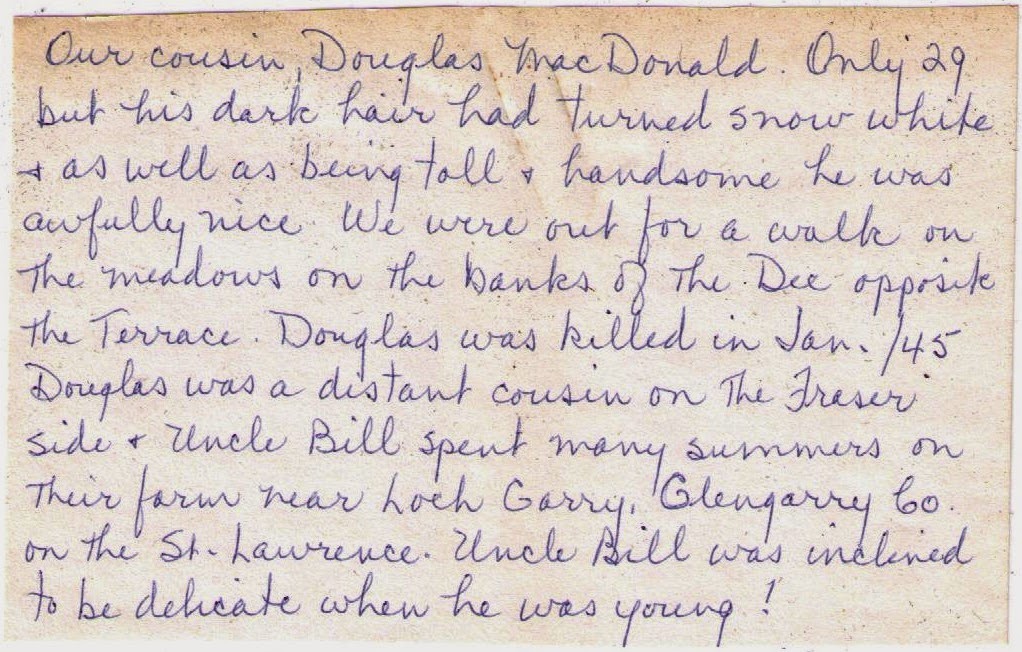 Our cousin, Douglas MacDonald. Only 29
but his dark hair had turned snow white
& as well as being tall & handsome he was
awfully nice. We were out for a walk on
the meadows on the banks of the Dee opposite
the Terrace. Douglas was killed in Jan. /45
Douglas was a distant cousin on the Fraser
side & Uncle Bill spent many summers on
their farm near Loch Garry, Glengarry Co.
on the St. Lawrence. Uncle Bill was inclined
to be delicate when he was young!